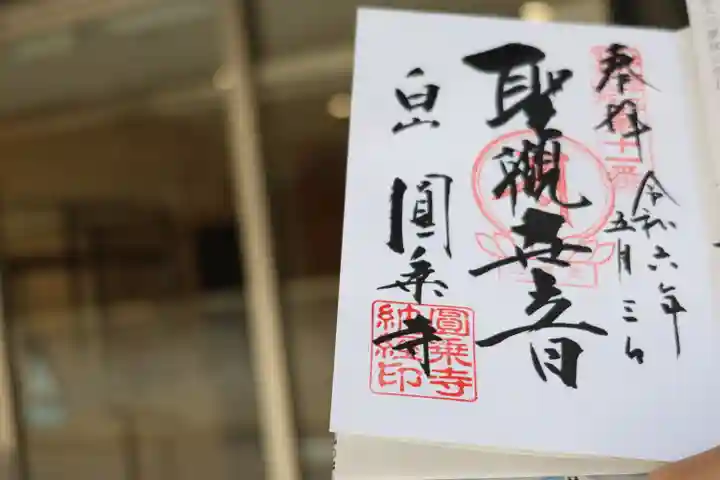 奉拝
令和六年
五月三日
聖觀世音
白山
圓乗寺
十一番
圓乗寺
納経印